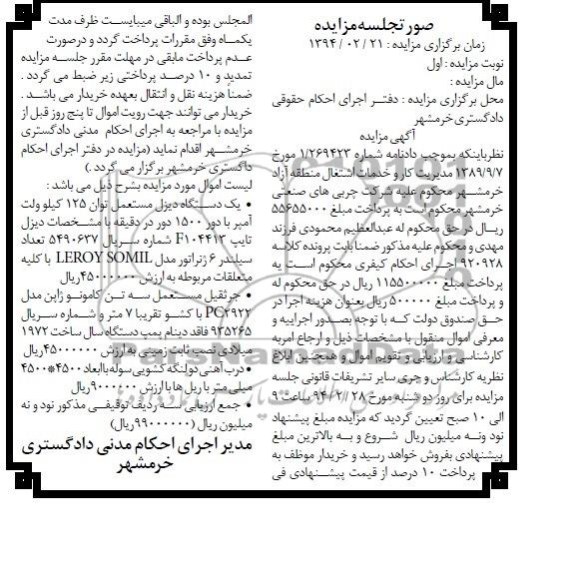 صورتجلسه مزایده
زمان برگزاری مزایده : ۲۱ / ۰۲ / ۱۳۹۴
نوبت مزایده : اول
مال مزایده :
محل برگزاری مزایده : دفتر اجرای احکام حقوقی
دادگستری خرمشهر
آگهی مزایده
نظر باینکه بموجب دادنامه شماره ۱/۲۶۹۴۲۳ مورخ
۱۳۸۹/۹/۷ مدیریت کار و خدمات اشتغال منطقه آزاد
خرمشهر محکوم علیه شرکت چربی های صنعتی
خرمشهر محکوم است به پرداخت مبلغ ۵۵۶۵۵۰۰۰
ریال در حق محکوم له عبدالعظیم محمودی فرزند
مهدی و محکوم علیه مذکور ضمنا بابت پرونده کلاسه
۹۲۰۹۲۸ اجرای احکام کیفری محکوم است به
پرداخت مبلغ ۱۱۵۵۰۰۰۰۰ ریال در حق محکوم له
و پرداخت مبلغ ۵۰۰۰۰۰ ریال بعنوان هزینه اجرا در
حق صندوق دولت که با توجه بصدور اجراییه و
معرفی اموال منقول با مشخصات ذیل و ارجاع امر به
کارشناسی و ارزیابی و تقویم اموال و همچنین ابلاغ
نظریه کارشناس و جری سایر تشریفات قانونی جلسه
مزایده برای روز دو شنبه مورخ ۲۸ /۲/ ۹۴ ساعت ۹
الی ۱۰ صبح تعیین گردید که مزایده مبلغ پیشنهاد
نود ونه میلیون ریال شروع و به بالاترین مبلغ
پیشنهادی بفروش خواهد رسید و خریدار موظف به
پرداخت ۱۰ درصد از قیمت پیشنهادی فی
المجلس بوده و الباقی میبایست ظرف مدت
یکماه وفق مقررات پرداخت گردد و درصورت
عدم پرداخت مابقی در مهلت مقرر جلسه مزایده
تمدید و ۱۰ درصد پرداختی زیر ضبط می گردد .
ضمناً هزینه نقل و انتقال بعهده خریدار می باشد .
خریدار می توانند جهت رویت اموال تا پنج روز قبل از
مزایده با مراجعه به اجرای احکام مدنی دادگستری
خرمشهر اقدام نماید (مزایده در دفتر اجرای احکام
داگستری خرمشهر برگزار می گردد .)
لیست اموال مورد مزایده بشرح ذیل می باشد :
• یک دستگاه دیزل مستعمل توان ۱۲۵ کیلو ولت
آمپر با دور ۱۵۰۰ دور در دقیقه با مشخصات دیزل
تایپ F۱۰۴۴۱۳ شماره سریال ۵۴۹۰۶۳۷ تعداد
سیلندر ۶ ژنراتور مدل LEROY SOMIL با کلیه
متعلقات مربوطه به ارزش ۴۵۰۰۰۰۰۰ریال
• جرثقیل مستعمل سه تن کامونو ژاپن مدل
PC۲۹۲۲ با کشو تقریبا ۷ متر و شماره سریال
۹۳۵۲۶۵ فاقد دینام پمپ دستگاه سال ساخت ۱۹۷۲
میلادی نصب ثابت زمینی به ارزش ۴۵۰۰۰۰۰۰ریال
• درب آهنی دولنگه کشویی سوله باابعاد ۴۵۰۰*۴۵۰۰
میلی متر با ریل ها با ارزش ۹۰۰۰۰۰۰ریال
• جمع ارزیابی سه ردیف توقیفی مذکور نود و نه
میلیون ریال (۹۹۰۰۰۰۰۰ریال)
مدیر اجرای احکام مدنی دادگستری
خرمشهر